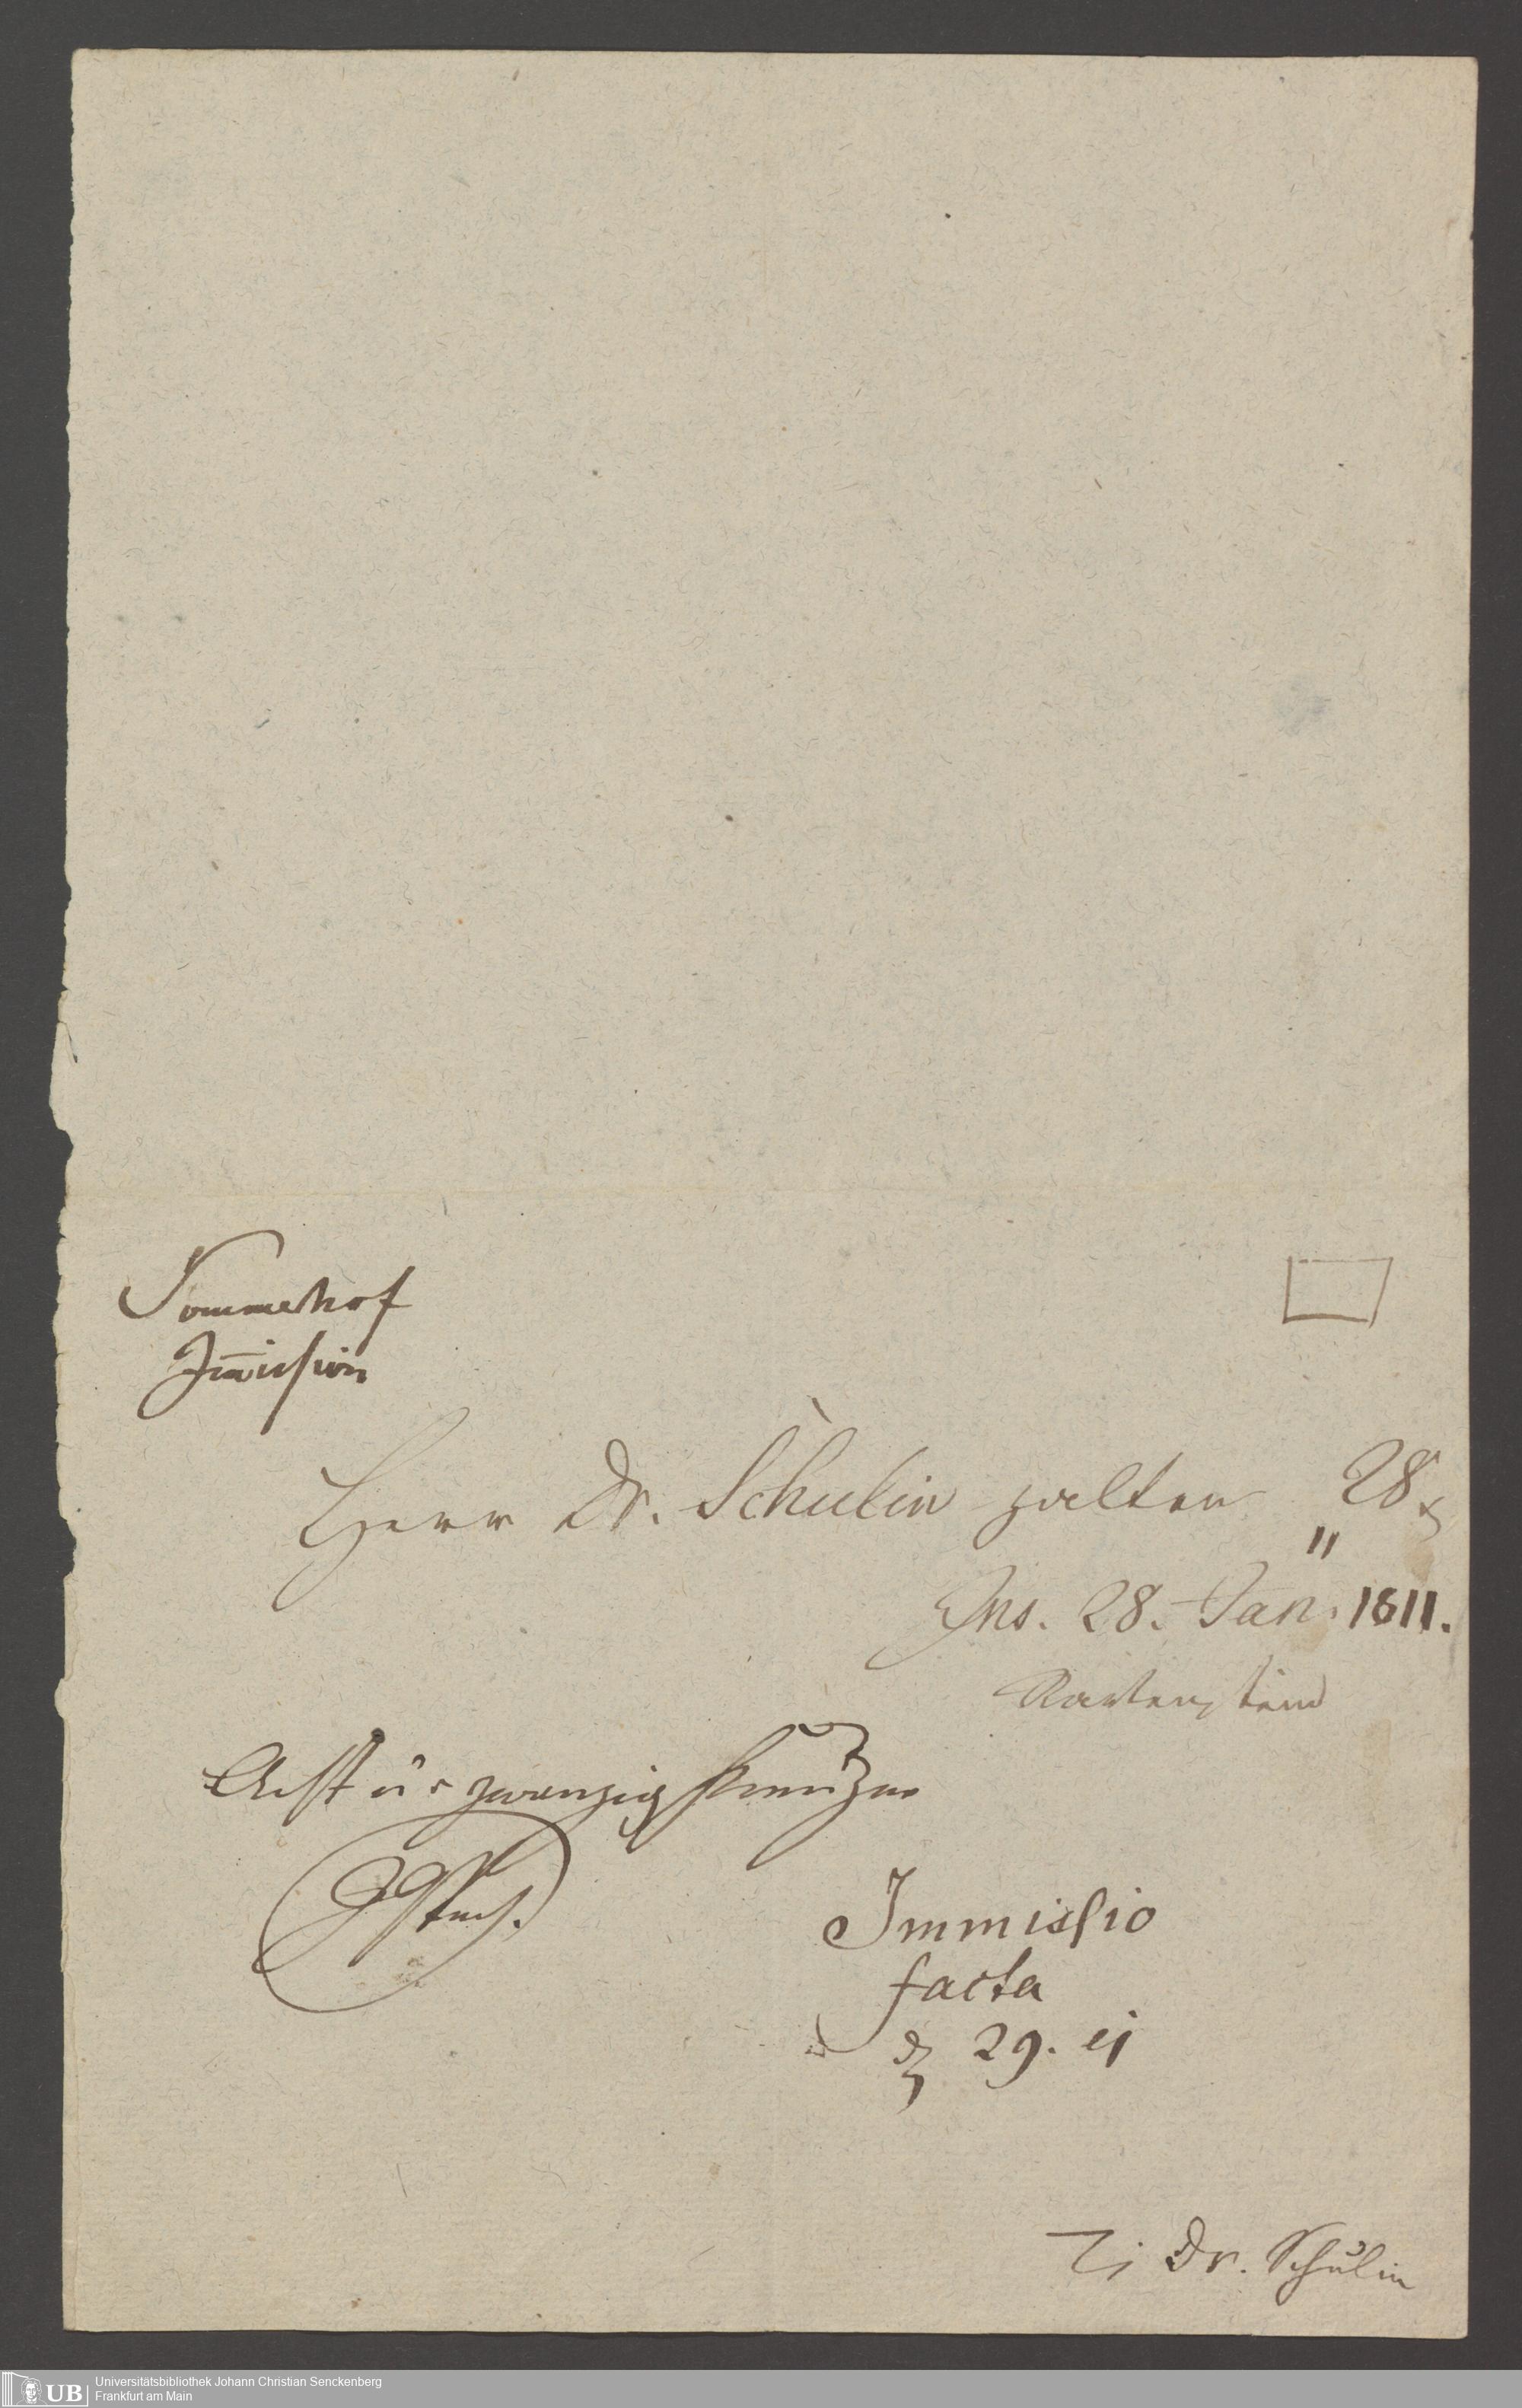 Sommerhof
Im̅ission
Herr Dr. Schulin zalten 28 x
"
Ins. 28. Jan. 1811.
Acht u. zwanzig Kreuzer
Immissio
facta
d 29. ej
Dr. Schulin
Universitätsbibliothek Johann Christian Senckenberg
Frankfurt am Main
UB